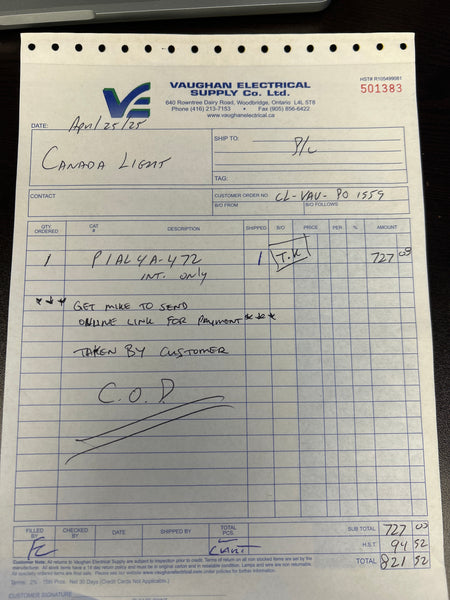 VE
VAUGHAN ELECTRICAL
SUPPLY Co. Ltd.
640 Rowntree Dairy Road, Woodbridge, Ontario L4L 5T8
Phone (416) 213-7153 • Fax (905) 856-6422
www.vaughanelectrical.ca
HST# R105499081
501383
DATE: April/25/25
CANADA LIGHT
SHIP TO: P/U
TAG:
CONTACT
CUSTOMER ORDER NO. CL-VAU-PO 1559
B/O FROM B/O FOLLOWS
QTY. ORDERED CAT # DESCRIPTION SHIPPED B/O PRICE PER % AMOUNT
1 P1AL4A-472 1 T.K 727 03
INT. ONLY
*** GET MIKE TO SEND
ONLINE LINK FOR PAYMENT ***
TAKEN BY CUSTOMER
C.O.D.
FILLED BY CHECKED BY DATE SHIPPED BY TOTAL PCS. SUB TOTAL 727 03
H.S.T. 94 52
TOTAL 821 52
Customer Note: All returns to Vaughan Electrical Supply are subject to inspection prior to credit. Terms of return on all non stocked items are set by the
manufacturer. Stock items have a 14 day return policy and must be in original carton and in resalable condition. Lamps and wire are non returnable items.
All specially ordered items are final sales. Please see our website www.vaughanelectrical.com under policies for further information.
Terms: 2% 15th Prox. Net 30 Days (Credit Cards Not Applicable.)
CUSTOMER SIGNATURE